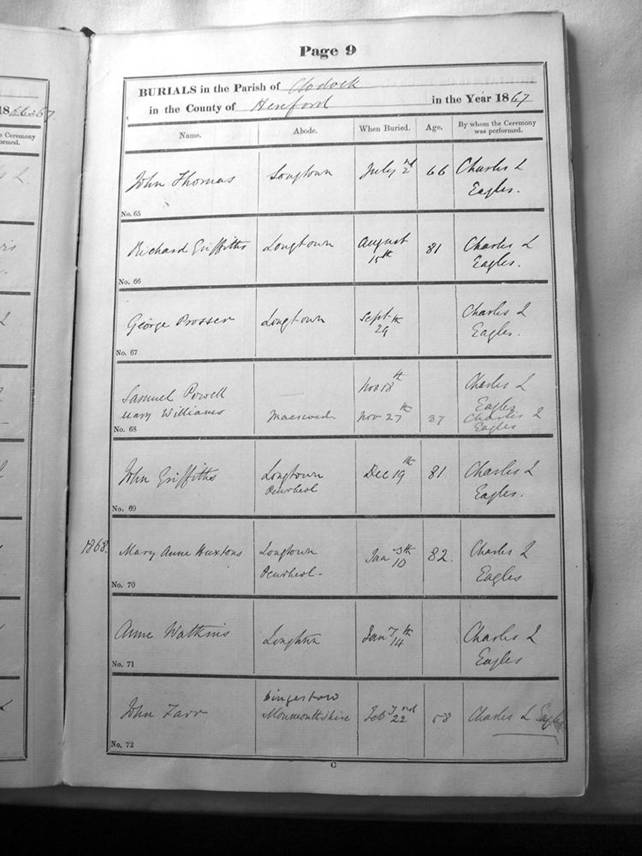 Page 9
BURIALS in the Parish of Clodock
in the County of Hereford in the Year 1867
Name. Abode. When Buried. Age. By whom the Ceremony was performed.
John Thomas Longtown July 2nd 66 Charles L
Eagles.
No. 65
Richard Griffiths Longtown August 15th 81 Charles L
Eagles.
No. 66
George Prosser Longtown Sept 29th Charles L
Eagles.
No. 67
Samuel Powell Nov 18th Charles L
Eagles
Mary Williams Nov 27th 37 Charles L
Eagles
No. 68
John Griffiths Longtown Dec 19th 81 Charles L
Eagles.
No. 69
1868. Mary Anne Longtown Jan 10th 82. Charles L
Eagles
No. 70
Anne Watkins Longtown Jan 14th Charles L
Eagles
No. 71
John Farr Dingestow
Monmouthshire Feb 22nd 58 Charles L Eagles
No. 72
C